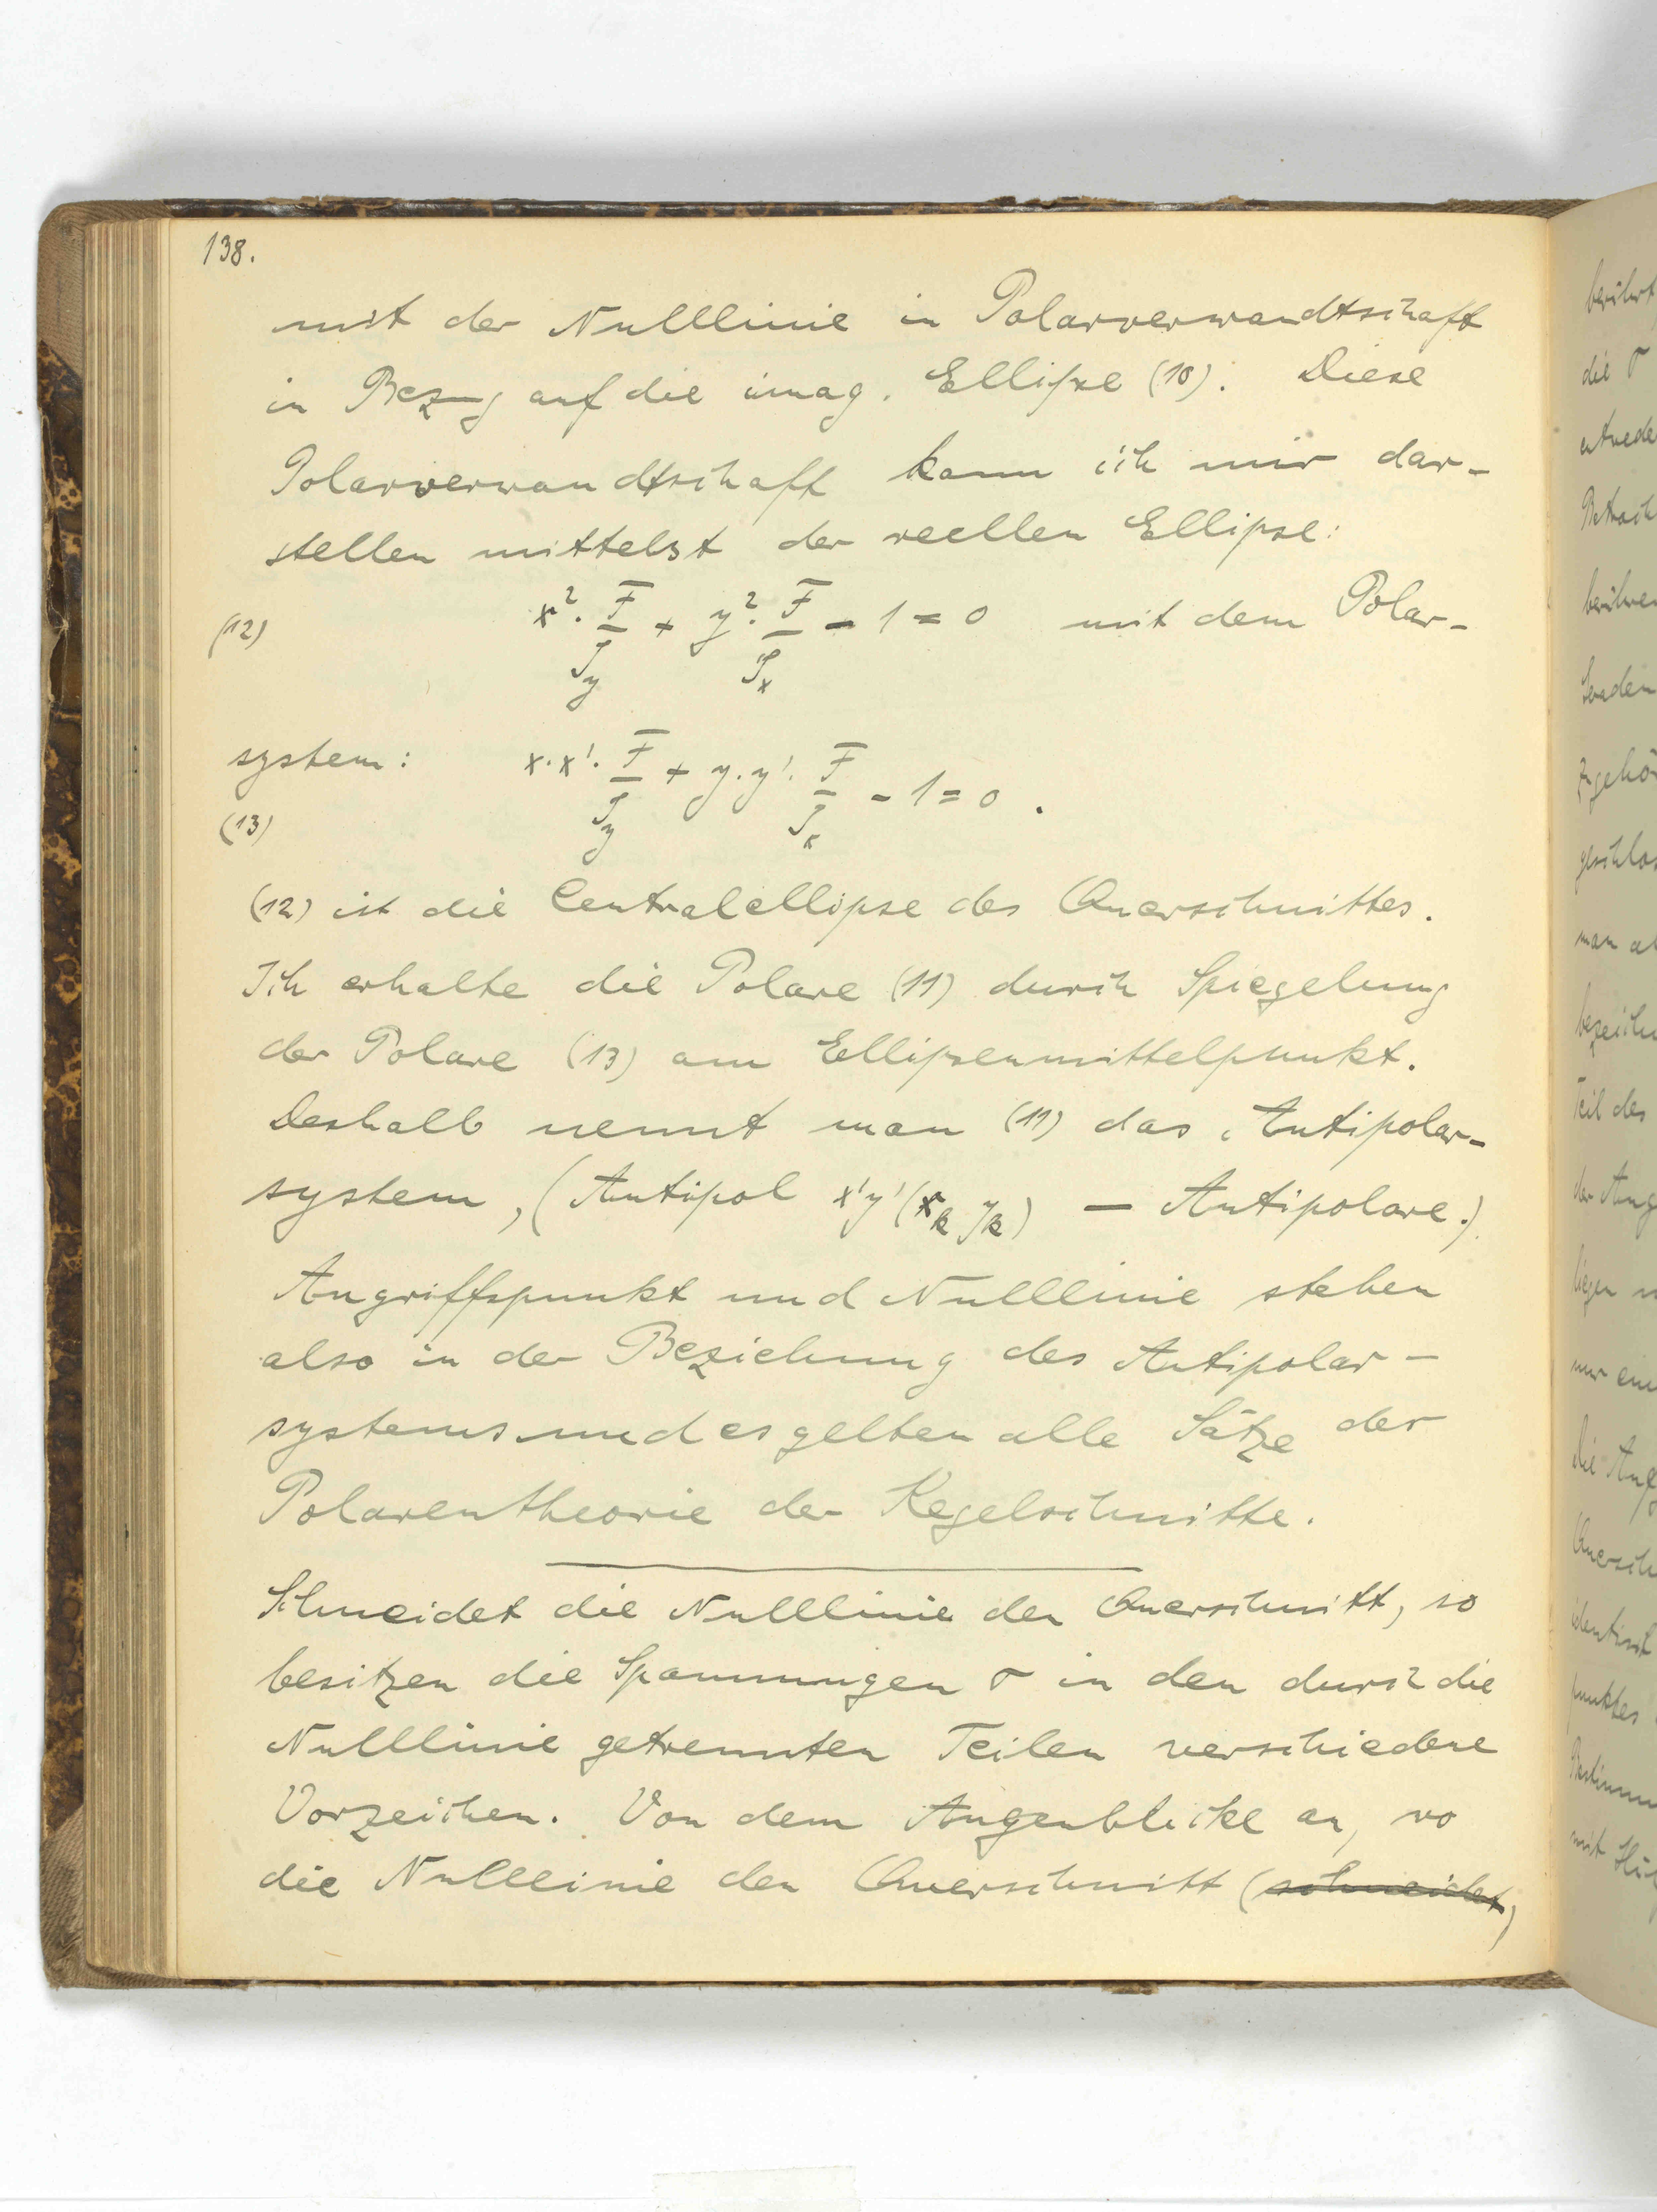 138.
mit der Nulllinie in Polarverwandtschaft
in Bezug auf die imag. Ellipse (10). Diese
Polarverwandtschaft kann ich mir dar-
stellen mittelst der reellen Ellipse:
(12) x². F/Jy + y². F/Jx - 1 = 0 mit dem Polar-
system: x.x'. F/Jy + y.y'. F/Jx - 1 = 0 .
(13)
(12) ist die Centralellipse des Querschnittes.
Ich erhalte die Polare (11) durch Spiegelung
der Polare (13) am Ellipsenmittelpunkt.
Deshalb nennt man (11) das Antipolar-
system, (Antipol x'y' (xk yk) — Antipolare.)
Angriffspunkt und Nulllinie stehen
also in der Beziehung des Antipolar-
systems und es gelten alle Sätze der
Polarentheorie der Kegelschnitte.
Schneidet die Nulllinie den Querschnitt, so
besitzen die Spannungen σ in den durch die
Nulllinie getrennten Teilen verschiedene
Vorzeichen. Von dem Augenblicke an, wo
die Nulllinie den Querschnitt (schneidet,)
berührt
die σ
entwede
Betrach
berühren
Geraden
zugehö
geschlos
man a
bezeichn
Teil des
der Ang
liegen
nur ein
die Ang
Quersch
identisch
punktes
Bestimm
mit